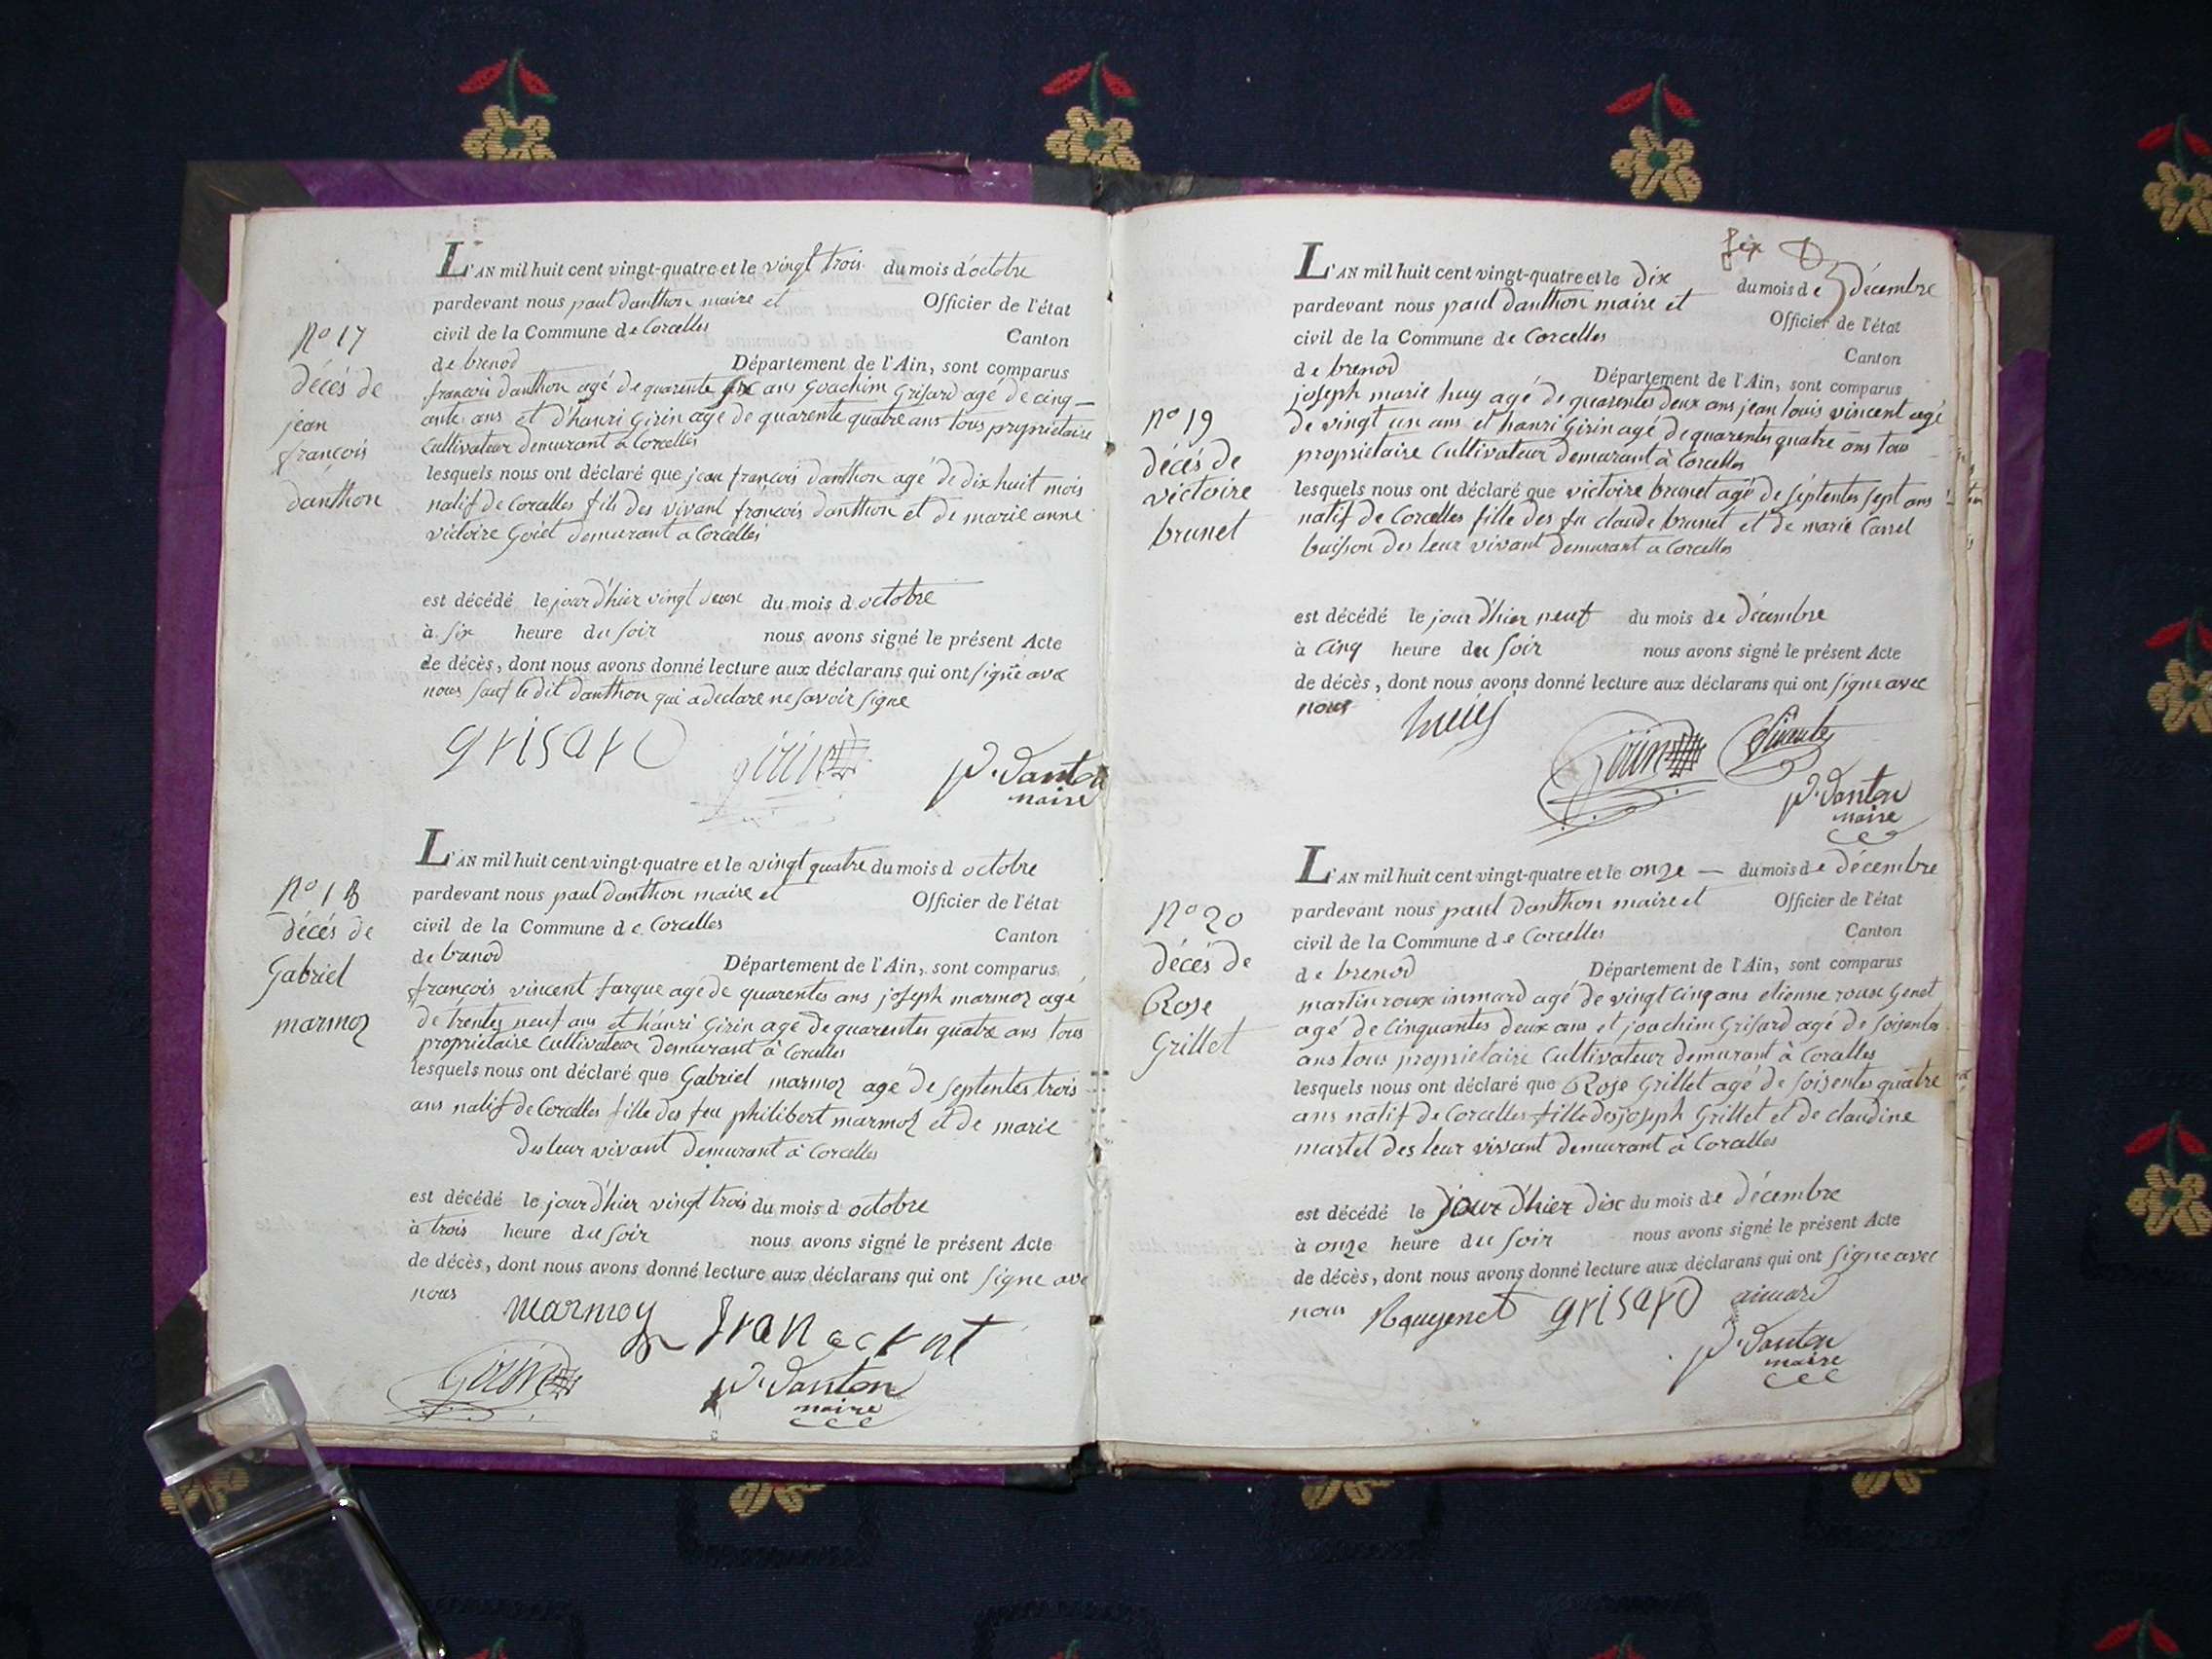 L'AN mil huit cent vingt-quatre et le vingt trois du mois d'octobre
pardevant nous paul danthon maire et Officier de l'état
civil de la Commune de Corcelles Canton
de brenod Département de l'Ain, sont comparus
françois danthon agé de quarente six ans Goachim Grisard agé de cinq_
ante ans et d'hanri Girin agé de quarente quatre ans tous propriétaire
Cultivateur demurant a Corcelles
lesquels nous ont déclaré que jean françois danthon agé de dix huit mois
natif de Corcelles fils des vivant françois danthon et de marie anne
victoire demurant a Corcelles
est décédé le jour d'hier vingt deux du mois d octobre
à six heure du soir nous avons signé le présent Acte
de décès, dont nous avons donné lecture aux déclarans qui ont signé avec
nous sauf le dit danthon qui a declare ne savoir signe
grisard girin P. Danton
maire
No 17
décés de
jean
françois
danthon
L'AN mil huit cent vingt-quatre et le vingt quatre du mois d octobre
pardevant nous paul danthon maire et Officier de l'état
civil de la Commune de Corcelles Canton
de brenod Département de l'Ain, sont comparus
françois vincent farque agé de quarentes ans joseph marmoz agé
de trentes neuf ans et hanri Girin agé de quarentes quatre ans tous
propriétaire Cultivateur demurant à Corcelles
lesquels nous ont déclaré que Gabriel marmoz agé de septentes trois
ans natif de Corcelles fille des feu philibert marmoz et de marie
des leur vivant demurant à Corcelles
est décédé le jour d'hier vingt trois du mois d octobre
à trois heure du soir nous avons signé le présent Acte
de décès, dont nous avons donné lecture aux déclarans qui ont signe avec
nous marmoz
Girin P. Danton
maire
No 18
décés de
Gabriel
marmoz
six
L'AN mil huit cent vingt-quatre et le dix du mois de décembre
pardevant nous paul danthon maire et Officier de l'état
civil de la Commune de Corcelles Canton
de brenod Département de l'Ain, sont comparus
joseph marie huy agé de quarentes deux ans jean louis vincent agé
de vingt un ans et hanri Girin agé de quarentes quatre ans tous
propriétaire Cultivateur demurant à Corcelles
lesquels nous ont déclaré que victoire brunet agé de septentes sept ans
natif de Corcelles fille des fu claude brunet et de marie Carrel
buisson des leur vivant demurant a Corcelles
est décédé le jour d'hier neuf du mois de décembre
à cinq heure du soir nous avons signé le présent Acte
de décès, dont nous avons donné lecture aux déclarans qui ont signe avec
nous
Girin
P. Danton
maire
no 19
décés de
victoire
brunet
L'AN mil huit cent vingt-quatre et le onze — du mois de décembre
pardevant nous paul danthon maire et Officier de l'état
civil de la Commune de Corcelles Canton
de brenod Département de l'Ain, sont comparus
martin roux inmard agé de vingt cinq ans etienne roux Genet
agé de cinquantes deux ans et joachim Grisard agé de soisentes
ans tous propriétaire Cultivateur demurant à Corcelles
lesquels nous ont déclaré que Rose Grillet agé de soisentes quatre
ans natif de Corcelles fille des joseph Grillet et de claudine
martel des leur vivant demurant à Corcelles
est décédé le jour d'hier dix du mois de décembre
à onze heure du soir nous avons signé le présent Acte
de décès, dont nous avons donné lecture aux déclarans qui ont signe avec
nous Rouxgenet grisard aimard
P. Danton
maire
No 20
décés de
Rose
Grillet